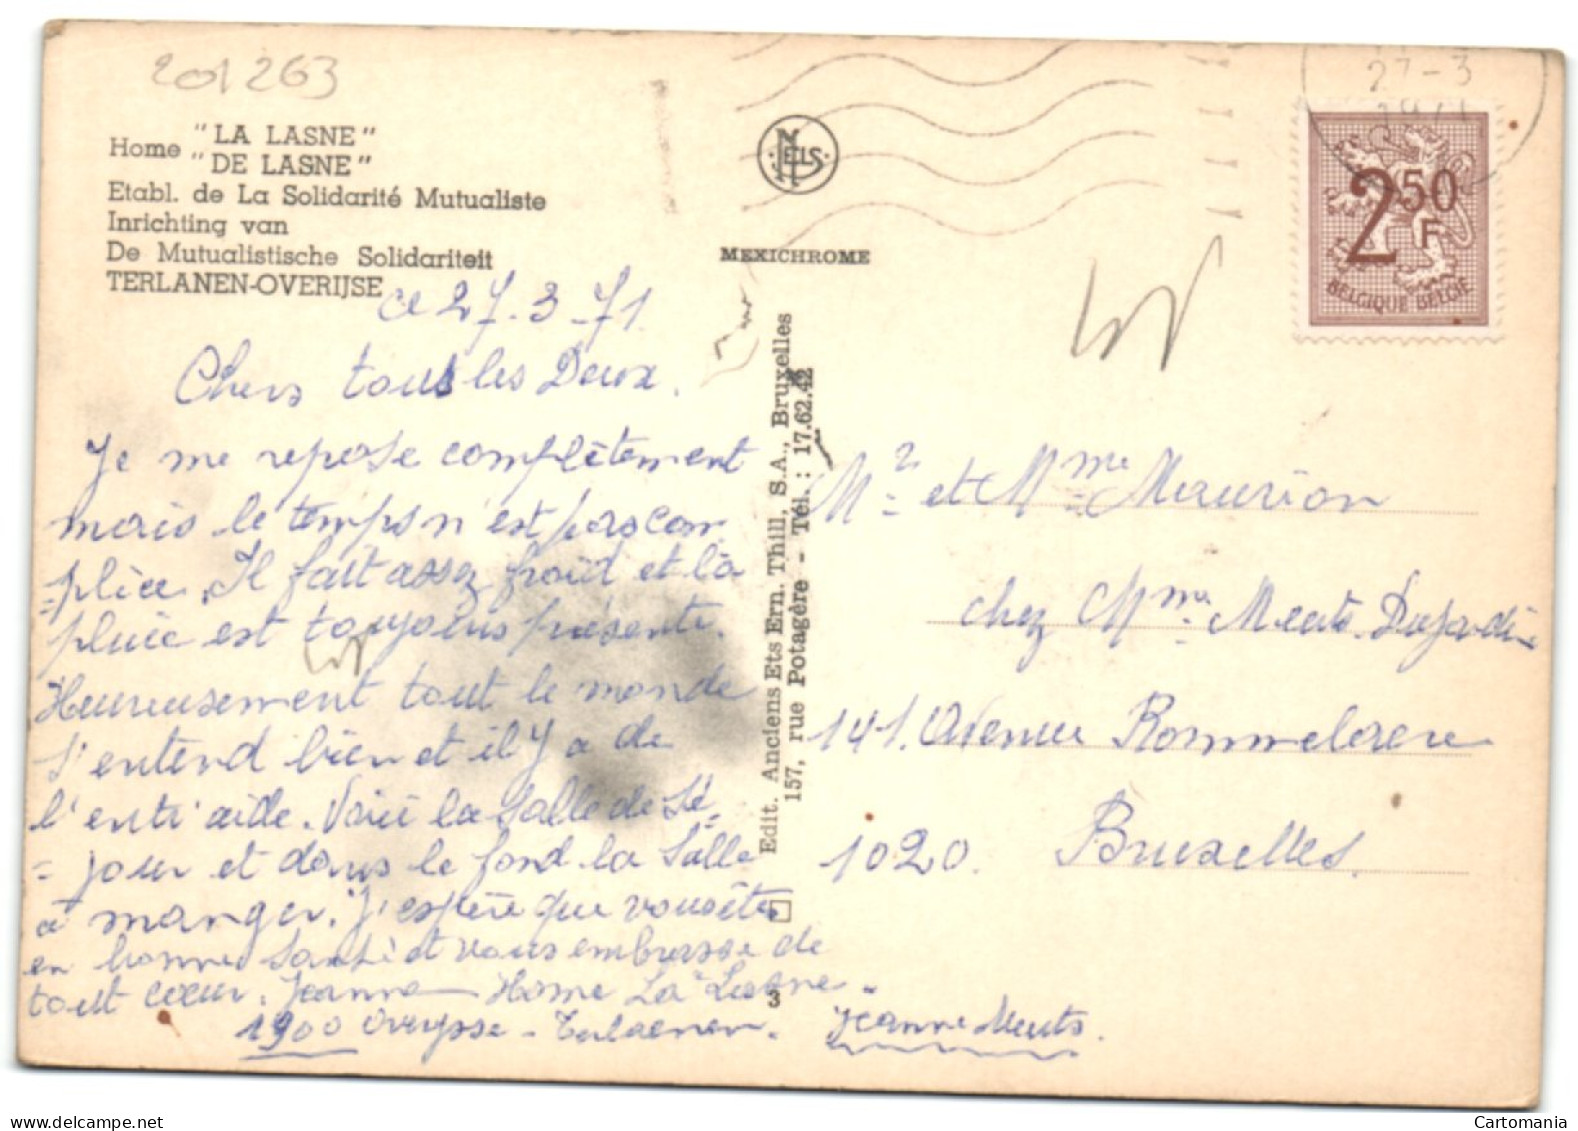 201263
Home "LA LASNE"
"DE LASNE"
Etabl. de La Solidarité Mutualiste
Inrichting van
De Mutualistische Solidariteit
TERLANEN-OVERIJSE
ce 27.3.71.
Chers tous les Deux.
Je me repose complètement
mais le temps n'est pas com
=plice. Il fait assez froid et la
pluie est toujours présente.
Heureusement tout le monde
s'entend bien et il y a de
l'entr'aide. Voici la Salle de Sé=
=jour et dans le fond la Salle
à manger. J'espère que vous êtes
en bonne Santé et vous embrasse de
tout cœur. Jeanne - Home La Lasne -
1900 Overysse - Terlaenen.
Jeanne Meuts.
NELS
MEXICHROME
Edit. Anciens Ets Ern. Thill, S.A., Bruxelles
157, rue Potagère - Tél. : 17.62.42
3
27-3
1971
2F50
BELGIQUE BELGIE
Mr et Mme Maurion
chez Mme Meuts. Dujardin
141. Avenue Rommelaere
1020. Bruxelles.
Cartomania